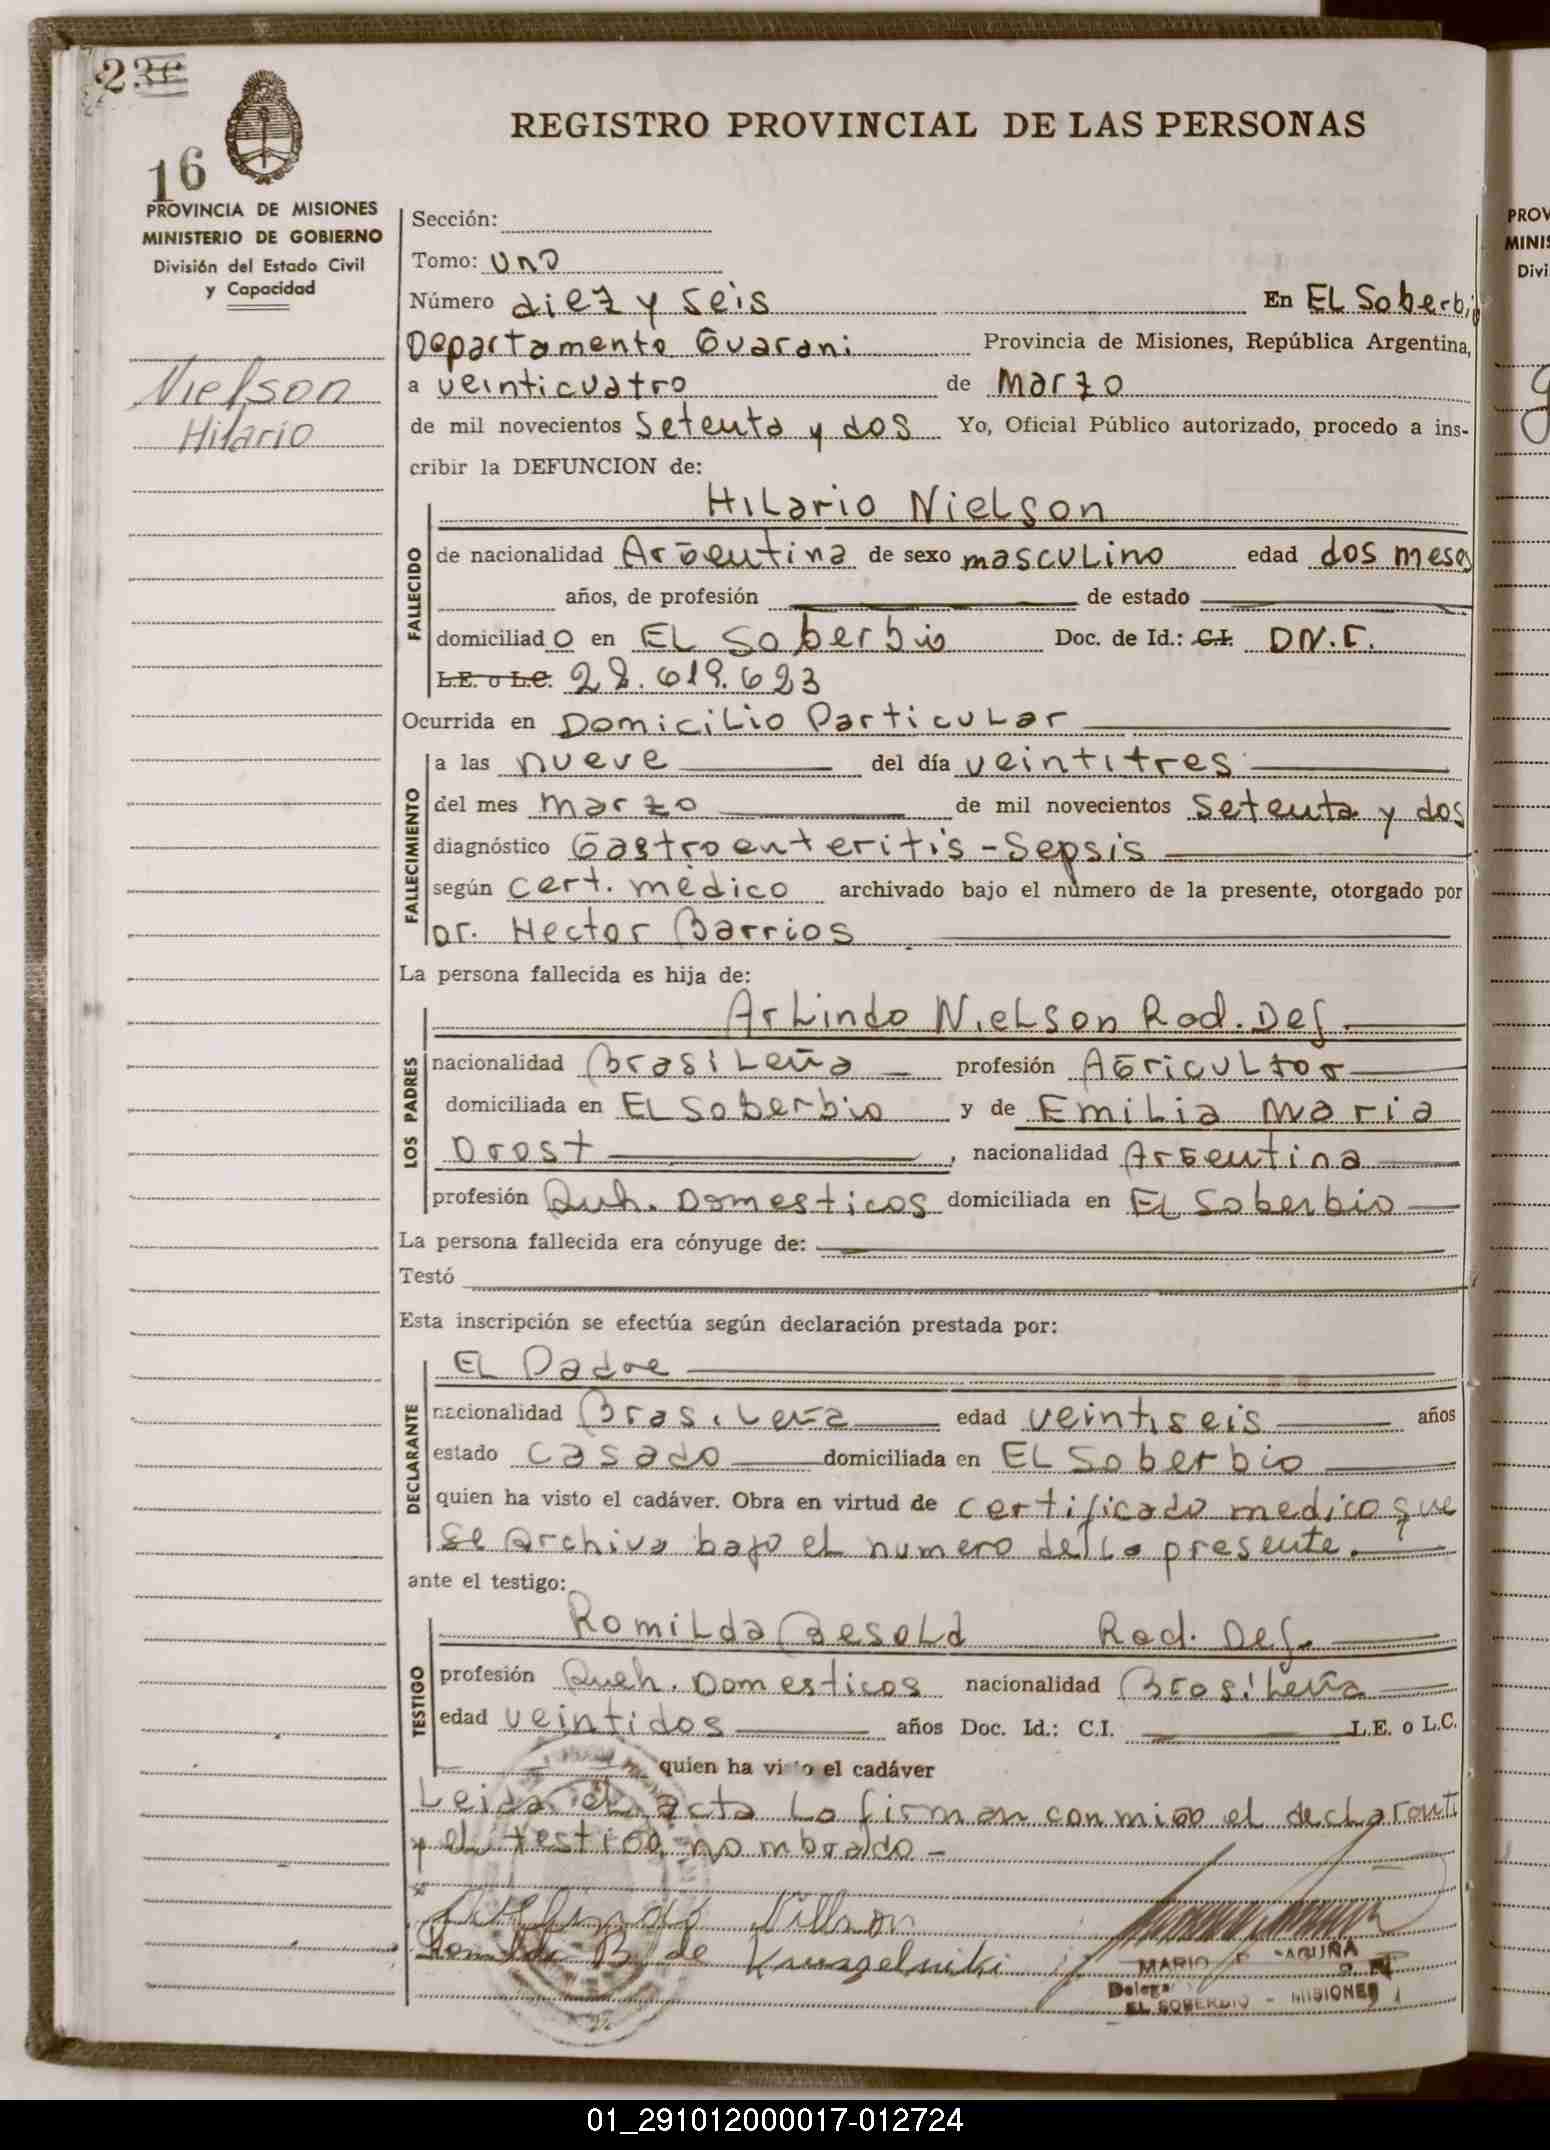 16
REGISTRO PROVINCIAL DE LAS PERSONAS
PROVINCIA DE MISIONES
MINISTERIO DE GOBIERNO
División del Estado Civil
y Capacidad
Nielson
Hilario
Sección:
Tomo: uno
Número diez y seis En EL Soberbio
Departamento Guarani Provincia de Misiones, República Argentina,
a veinticuatro de Marzo
de mil novecientos Setenta y dos Yo, Oficial Público autorizado, procedo a ins-
cribir la DEFUNCION de:
HiLario NieLson
FALLECIDO
de nacionalidad Argentina de sexo mascuLino edad dos meses
años, de profesión de estado
domiciliado en EL Soberbio Doc. de Id.: C.I. DN.I.
L.E. o L.C. 22.619.623
Ocurrida en DomiciLio ParticuLar
FALLECIMIENTO
a las nueve del día veintitres
del mes marzo de mil novecientos setenta y dos
diagnóstico Gastroenteritis - Sepsis
según cert. médico archivado bajo el número de la presente, otorgado por
Dr. Hector Barrios
La persona fallecida es hija de:
LOS PADRES
ArLindo NieLson Rod. Def.
nacionalidad BrasiLeña profesión AgricuLtor
domiciliada en EL Soberbio y de EmiLia Maria
Drost, nacionalidad Argentina
profesión Queh. Domesticos domiciliada en EL Soberbio
La persona fallecida era cónyuge de:
Testó
Esta inscripción se efectúa según declaración prestada por:
DECLARANTE
EL Padre
nacionalidad BrasiLeña edad veintiseis años
estado casado domiciliada en EL Soberbio
quien ha visto el cadáver. Obra en virtud de certificado medico que
se archiva bajo eL numero de La presente.
ante el testigo:
TESTIGO
RomiLda BesoLd Rod. Def.
profesión Queh. Domesticos nacionalidad BrasiLeña
edad veintidos años Doc. Id.: C.I. L.E. o L.C.
quien ha visto el cadáver
Leida el acta Lo firman conmigo el decLarante
y el testigo nombrado -
Romilda B. de Kruszelniki
MARIO
EL SOBERBIO - MISIONES
01_291012000017-012724